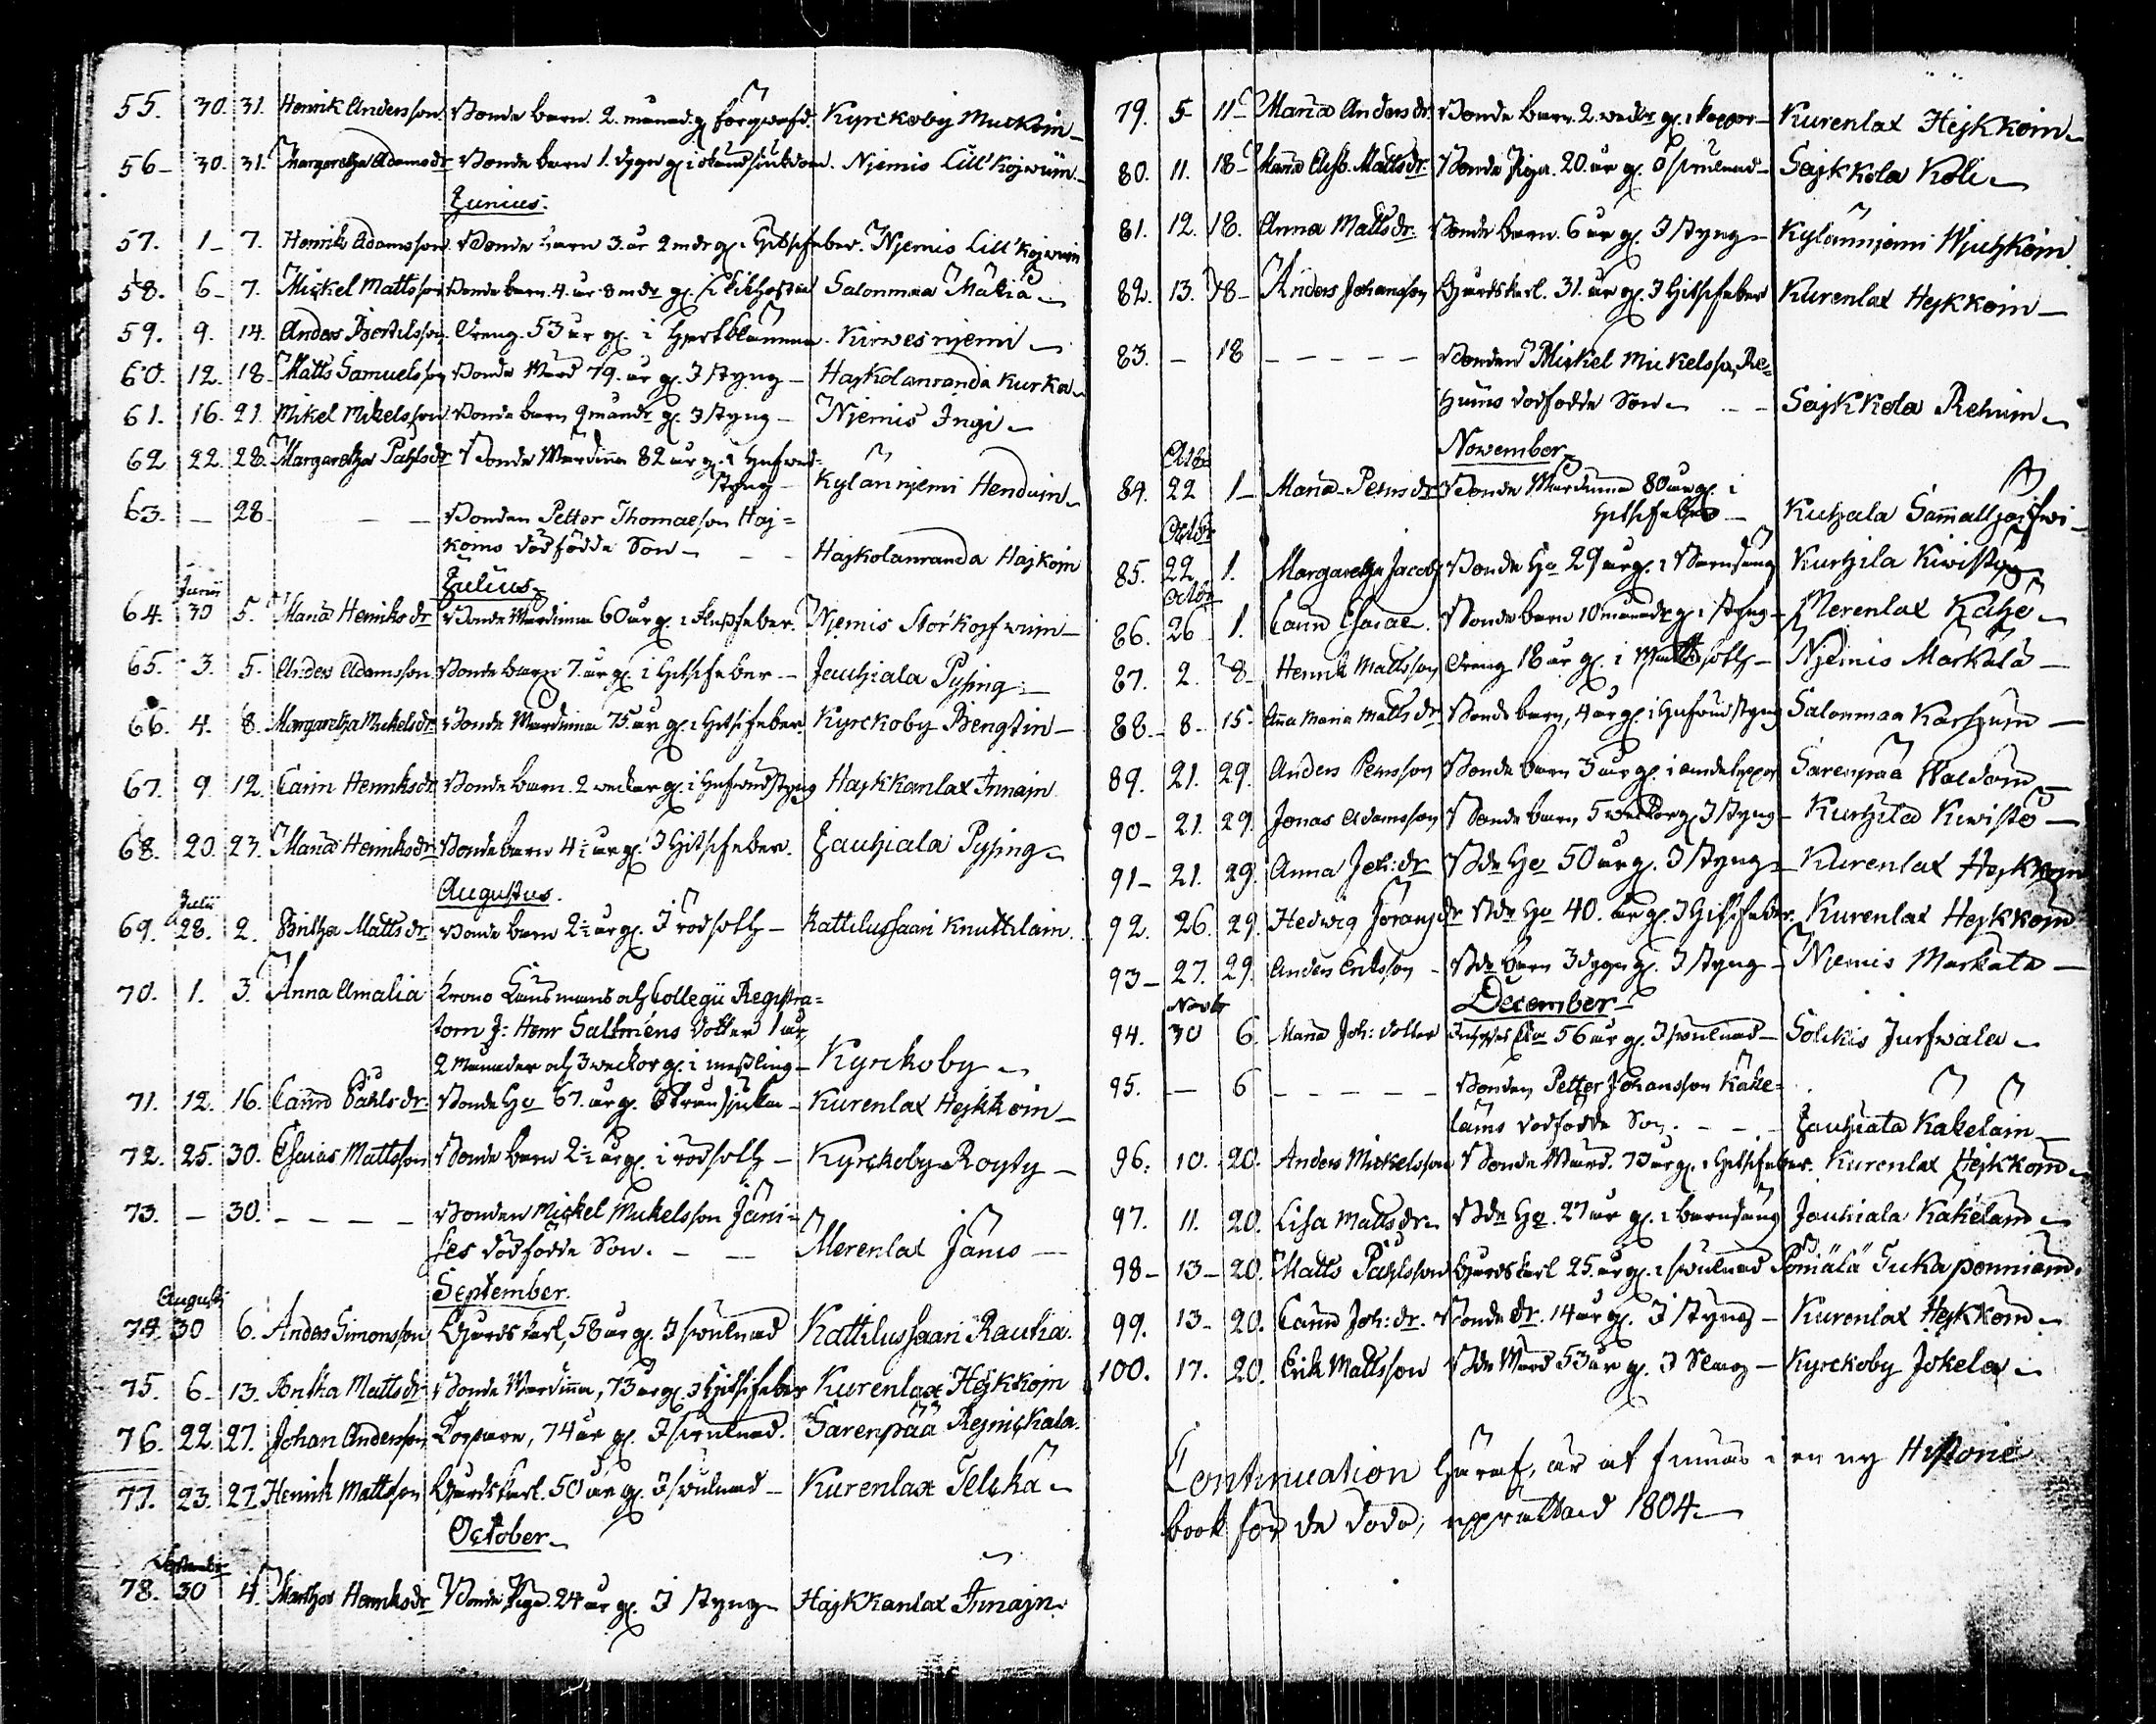 55. 30. 31. Henrik Andersson. Bonde barn. 2. månad. g. förqwafd. Kyrckoby Muckoin
56 30. 31. Margaretha Adamsdr Bonde barn 1. dygn g. i okänd siukdom. Njemis Lill'Kojwuin
Junius.
57. 1 7. Henrik Adamsson. Bonde barn 3. år 2 mdr g. i Hitsifeber. Njemis Lill'Kojwuin
58. 6 7. Mickel Mattsson Bonde barn. 4. år. 8 mdr g. i Kikhosta Salonmaa Mälia
59. 9. 14. Anders Bertilsson Dreng. 53 år g. i Kirwesnjemi
60. 12. 18. Matts Samuelsson Bonde Mård 79. år g. I styng Hajkolanranda Kurka
61. 16. 21. Mikel Mikelsson Bonde barn 9 månadr g. I styng Njemis Ingi
62 22. 28. Margaretha Påhlsdr Bonde Mårdinna 82 år g. i Hufwud=
styng Kylännjemi Henduin
63. — 28 — — Bonden Petter Thomaeson Haj=
koins dödfödde Son — Hajkolanranda Hajkoin
Julius
Junii
64. 30 5. Maria Henriksdr Bonde Mårdinna 60 år g. i Flussfeber. Njemis Stor'Kojfwuin
65. 3. 5. Anders Adamsson Bonde barn 7. år g. i Hitsifeber Jauhiala Pysing
66. 4. 8. Margaretha Mickelsdr Bonde Mårdinna 75. år g. i Hitsifeber Kyrckoby Bengtin
67. 9. 12. Carin Henriksdr Bonde barn. 2 weckor g. i Hufwudstyng Hajkkanlax Innain
68. 20. 23. Maria Henriksdr Bonde barn 4½ år g. I Hitsifeber. Jauhiala Pysing
Augustus.
Julii
69. 28. 2. Britha Mattsdr Bonde barn 2½ år g. I rödsoth Kattilussaari Knuttilain.
70. 1. 3. Anna Amalia Krono Länsmans och Collegii Registra=
torn J: Henr Saltméns dotter 1 år,
2 Månader och 3 weckor g. i messling Kyrckoby
71. 12. 16. Carin Påhlsdr Bonde Ho 67. år g. Kurenlax Hejkkoin
72. 25. 30. Esaias Mattsson Bonde barn 2½ år g. i rödsoth Kyrckoby Royty
73. — 30. — — — Bonden Mickel Mickelsson Jäni=
ses dödfödde Son. — Merenlax Jänis
September.
Augusti
74. 30 6. Anders Simonsson Gårdskarl, 58 år g. I swulnad Kattilussaari Rautia.
75. 6 13. Britha Mattsdr Bonde Mårdinna, 73 år g. i Hitsifeber Kurenlax Hejkkoin
76. 22 27. Johan Andersson Torpare, 74 år g. I swulnad. Sarenpää Rejnickala.
77. 23. 27 Henrik Mattsson Gårdskarl. 50 år g. I swulnad Kurenlax Telckä
October
September
78. 30 4. Martha Henriksdr Bonde Piga. 24 år g. I styng Hajkkanlax Innajn.
79. 5 11 Maria Andersdr. Bonde barn. 2. weckr g. i koppor Kurenlax Hejkkoin
80. 11. 18 Maria Elisb. Mattsdr. Bonde Piga. 20. år g. i swulnad Sajkkola Koli
81. 12. 18. Anna Mattsdr. Bonde barn. 6 år g. I styng Kylännjemi Wjuhkoin
82. 13. 18 Anders Johansson Gårdskarl. 31. år g. I Hitsifeber Kurenlax Hejkkoin
83. — 18 — — — Bonden Mickel Mickelsson Re=
huins dödfödde Son — Sajkkola Rehuin
November
Octbr
84. 22 1 Maria Persdr Bonde Mårdinna 80 år g. i
Hitsifeber Kuhala Sammallhojfwi
Octbr
85. 22 1. Margaretha Jacobsdr Bonde Ho 29 år g. i Barnsäng Kurhila Kiwistö
Octbr
86. 26 1. Carin Esaiae. Bonde barn 10 månadr g. i styng Merenlax Kähö
87. 2. 8 Henrik Mattsson Dreng 18 år g. i Njemis Markala
88. 8 15 Anna Maria Matts dr Bonde barn, 4 år g. i Hufwud styng Salonmaa Karhuin
89. 21. 29. Anders Persson Bonde barn 3 år g. i Sarenpää Waldoin
90 21. 29. Jonas Adamsson Bonde barn 5 weckor g. I styng Kurhila Kiwistö
91 21. 29. Anna Joh: dr Bde Ho 50 år g. I styng Kurenlax Hejkkoin
92. 26. 29. Hedwig Jöransdr Bde Ho 40. år g. I Hitsifeber. Kurenlax Hejkkoin
93 27. 29. Anders Eriksson Bde barn 3 dygn g. I styng Njemis Markala
December
Novbr
94. 30 6. Maria Joh: dotter Inhyses 56 år g. I swulnad Solckis Jurfwala
95. — 6 — — — Bonden Petter Johansson Käke=
läins dödfödde Son. — Jauhiala Käkelain
96. 10. 20. Anders Mickelsson Bonde Mård. 73 år g. i Hitsifeber. Kurenlax Hejkkoin
97. 11. 20. Lisa Mattsdr Bde Ho. 27 år g. i barnsäng Jauhiala Käkelain
98 13 20. Matts Påhlsson Gårdskarl 25. år g. i swulnad Ponnälä Tuckaponniain.
99. 13 20. Carin Joh: dr. Bonde dr. 14 år g. I styng Kurenlax Hejkkoin
100. 17. 20. Erik Mattsson Bde Mård 53 år g. I Slag Kyrckoby Jokela
Continuation häraf, är at finnas i en ny Historie
book för de döda, upprättad 1804